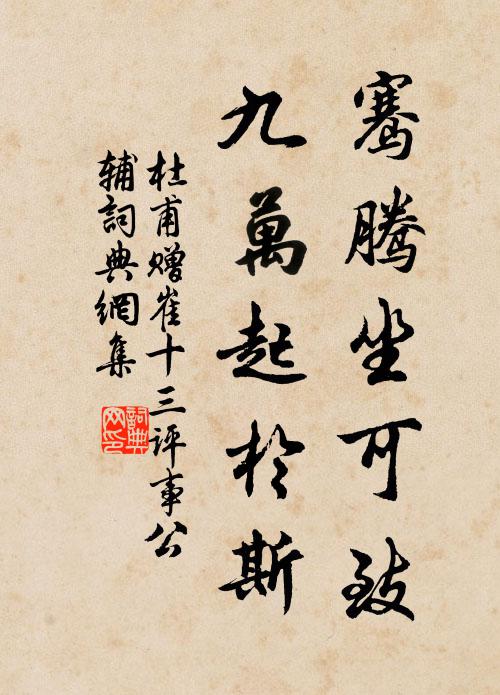 騫騰坐可致
九萬起於斯
杜甫贈崔十三評事公
輔詞典網集
詞典网印